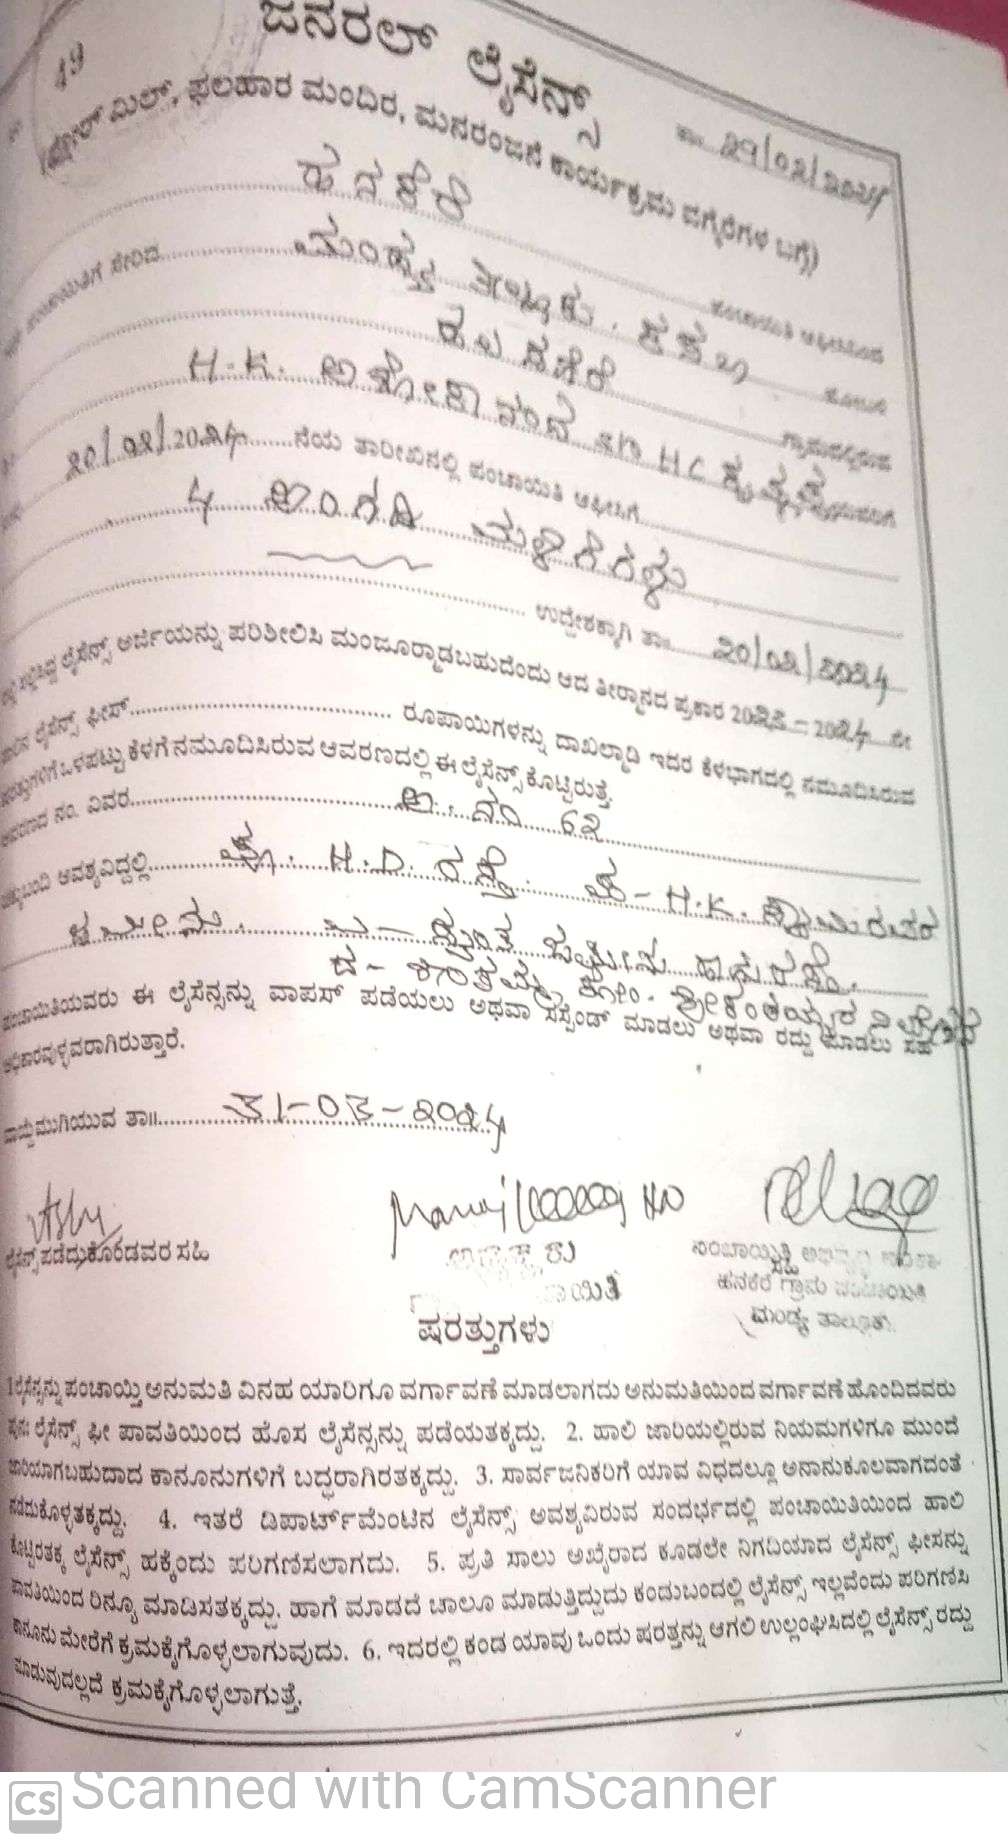 ಜನರಲ್ ಲೈಸೆನ್ಸ್
49
ತಾ॥ 29/02/2024
ಮಿಲ್, ಫಲಹಾರ ಮಂದಿರ, ಮನರಂಜನೆ ಕಾರ್ಯಕ್ರಮ ವಗೈರೆಗಳ ಬಗ್ಗೆ)
ಹನಕೆರೆ
ಸೇರಿದ ಮಂಡ್ಯ ತಾಲ್ಲೂಕು. ಕಸಬಾ ಹೋಬಳಿ
ಹನಕೆರೆ ಗ್ರಾಮದಲ್ಲಿರುವ
H.K. ಅಶೋಕ ತಂದೆ HC
20/02/2024 ನೆಯ ತಾರೀಖಿನಲ್ಲಿ ಪಂಚಾಯಿತಿ ಆಫೀಸಿಗೆ
4 ಅಂಗಡಿ ಮಳಿಗೆಗಳು
ಉದ್ದೇಶಕ್ಕಾಗಿ ತಾ॥ 20/02/2024
ಲೈಸೆನ್ಸ್ ಅರ್ಜಿಯನ್ನು ಪರಿಶೀಲಿಸಿ ಮಂಜೂರ್‍ಮಾಡಬಹುದೆಂದು ಆದ ತೀರ್‍ಮಾನದ ಪ್ರಕಾರ 2023 – 2024 ನೇ
ಲೈಸೆನ್ಸ್ ಫೀಸ್ ರೂಪಾಯಿಗಳನ್ನು ದಾಖಲ್ಮಾಡಿ ಇದರ ಕೆಳಭಾಗದಲ್ಲಿ ನಮೂದಿಸಿರುವ
ಷರತ್ತುಗಳಿಗೆ ಒಳಪಟ್ಟು ಕೆಳಗೆ ನಮೂದಿಸಿರುವ ಆವರಣದಲ್ಲಿ ಈ ಲೈಸೆನ್ಸ್ ಕೊಟ್ಟಿರುತ್ತೆ.
ಆವರಣದ ನಂ. ವಿವರ ಅ. ನಂ 62
ಚಕ್ಕುಬಂದಿ ಆವಶ್ಯವಿದ್ದಲ್ಲಿ ಪೂ. H.D. ರಸ್ತೆ. ಪ – H.K. ಸ್ವಾಮಿರವರ
ಜಮೀನು. ಉ – ಸ್ವಂತ ಜಮೀನು ಹಾಗು ರಸ್ತೆ.
ದ – ಶಾಂತಮ್ಮ ಕೋಂ. ಶ್ರೀಕಂಠಯ್ಯರ
ಪಂಚಾಯಿತಿಯವರು ಈ ಲೈಸೆನ್ಸನ್ನು ವಾಪಸ್ ಪಡೆಯಲು ಅಥವಾ ಸಸ್ಪೆಂಡ್ ಮಾಡಲು ಅಥವಾ ರದ್ದು ಮಾಡಲು ಸಹ
ಅಧಿಕಾರವುಳ್ಳವರಾಗಿರುತ್ತಾರೆ.
ವಾಯ್ದೆ ಮುಗಿಯುವ ತಾ॥ 31-03-2024
ಲೈಸೆನ್ಸ್ ಪಡೆದುಕೊಂಡವರ ಸಹಿ
ಅಧ್ಯಕ್ಷರು
ಹನಕೆರೆ ಗ್ರಾಮ ಪಂಚಾಯಿತಿ
ಮಂಡ್ಯ ತಾಲ್ಲೂಕು.
ಷರತ್ತುಗಳು
1 ಲೈಸೆನ್ಸನ್ನು ಪಂಚಾಯ್ತಿ ಅನುಮತಿ ವಿನಹ ಯಾರಿಗೂ ವರ್ಗಾವಣೆ ಮಾಡಲಾಗದು ಅನುಮತಿಯಿಂದ ವರ್ಗಾವಣೆ ಹೊಂದಿದವರು
ಪುನಃ ಲೈಸೆನ್ಸ್ ಫೀ ಪಾವತಿಯಿಂದ ಹೊಸ ಲೈಸೆನ್ಸನ್ನು ಪಡೆಯತಕ್ಕದ್ದು. 2. ಹಾಲಿ ಜಾರಿಯಲ್ಲಿರುವ ನಿಯಮಗಳಿಗೂ ಮುಂದೆ
ಜಾರಿಯಾಗಬಹುದಾದ ಕಾನೂನುಗಳಿಗೆ ಬದ್ಧರಾಗಿರತಕ್ಕದ್ದು. 3. ಸಾರ್ವಜನಿಕರಿಗೆ ಯಾವ ವಿಧದಲ್ಲೂ ಅನಾನುಕೂಲವಾಗದಂತೆ
ನಡೆದುಕೊಳ್ಳತಕ್ಕದ್ದು. 4. ಇತರೆ ಡಿಪಾರ್ಟ್‌ಮೆಂಟಿನ ಲೈಸೆನ್ಸ್ ಅವಶ್ಯವಿರುವ ಸಂದರ್ಭದಲ್ಲಿ ಪಂಚಾಯಿತಿಯಿಂದ ಹಾಲಿ
ಕೊಟ್ಟಿರತಕ್ಕ ಲೈಸೆನ್ಸ್ ಹಕ್ಕೆಂದು ಪರಿಗಣಿಸಲಾಗದು. 5. ಪ್ರತಿ ಸಾಲು ಅಖೈರಾದ ಕೂಡಲೇ ನಿಗದಿಯಾದ ಲೈಸೆನ್ಸ್ ಫೀಸನ್ನು
ಪಾವತಿಯಿಂದ ರಿನ್ಯೂ ಮಾಡಿಸತಕ್ಕದ್ದು. ಹಾಗೆ ಮಾಡದೆ ಚಾಲೂ ಮಾಡುತ್ತಿದ್ದುದು ಕಂಡುಬಂದಲ್ಲಿ ಲೈಸೆನ್ಸ್ ಇಲ್ಲವೆಂದು ಪರಿಗಣಿಸಿ
ಕಾನೂನು ಮೇರೆಗೆ ಕ್ರಮಕೈಗೊಳ್ಳಲಾಗುವುದು. 6. ಇದರಲ್ಲಿ ಕಂಡ ಯಾವು ಒಂದು ಷರತ್ತನ್ನು ಆಗಲಿ ಉಲ್ಲಂಘಿಸಿದಲ್ಲಿ ಲೈಸೆನ್ಸ್ ರದ್ದು
ಮಾಡುವುದಲ್ಲದೆ ಕ್ರಮಕೈಗೊಳ್ಳಲಾಗುತ್ತೆ.
CS Scanned with CamScanner